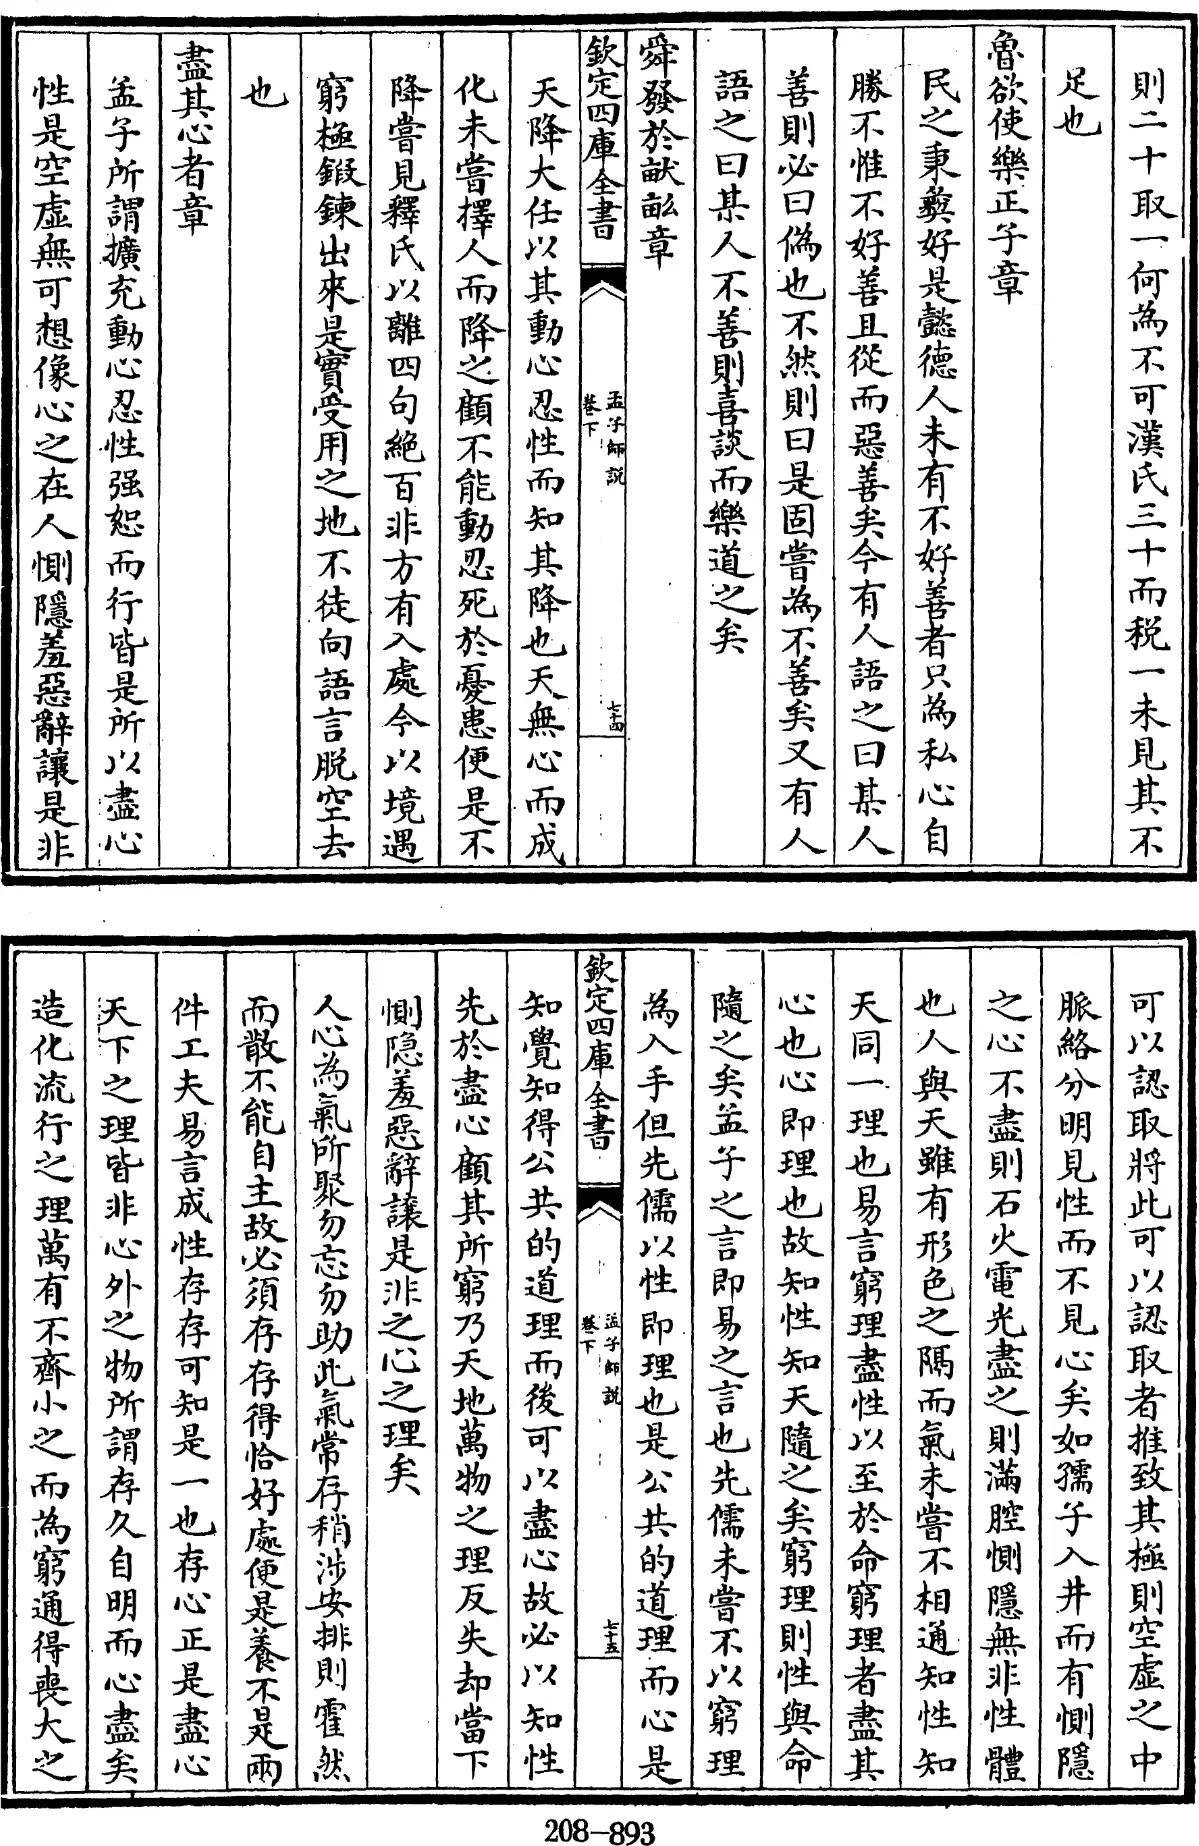 則二十取一何為不可漢氏三十而税一未見其不
足也
魯欲使樂正子章
民之秉彝好是懿德人未有不好善者只為私心自
勝不惟不好善且從而惡善矣今有人語之曰某人
善則必曰偽也不然則曰是固嘗為不善矣又有人
語之曰某人不善則喜談而樂道之矣
舜發於畎畝章
欽定四庫全書
孟子師說
卷下
七十四
天降大任以其動心忍性而知其降也天無心而成
化未嘗擇人而降之顧不能動忍死於憂患便是不
降嘗見釋氏以離四句絶百非方有入處今以境遇
窮極鍛鍊出來是實受用之地不徒向語言脱空去
也
盡其心者章
孟子所謂擴充動心忍性强恕而行皆是所以盡心
性是空虛無可想像心之在人惻隱羞惡辭讓是非
可以認取將此可以認取者推致其極則空虛之中
脈絡分明見性而不見心矣如孺子入井而有惻隱
之心不盡則石火電光盡之則滿腔惻隱無非性體
也人與天雖有形色之隔而氣未嘗不相通知性知
天同一理也易言窮理盡性以至於命窮理者盡其
心也心即理也故知性知天隨之矣窮理則性與命
隨之矣孟子之言即易之言也先儒未嘗不以窮理
為入手但先儒以性即理也是公共的道理而心是
欽定四庫全書
孟子師說
卷下
七十五
知覺知得公共的道理而後可以盡心故必以知性
先於盡心顧其所窮乃天地萬物之理反失却當下
惻隐羞惡辭讓是非之心之理矣
人心為氣所聚勿忘勿助此氣常存稍涉安排則霍然
而散不能自主故必須存存得恰好處便是養不是兩
件工夫易言成性存存可知是一也存心正是盡心
天下之理皆非心外之物所謂存久自明而心盡矣
造化流行之理萬有不齊小之而為窮通得喪大之
208-893